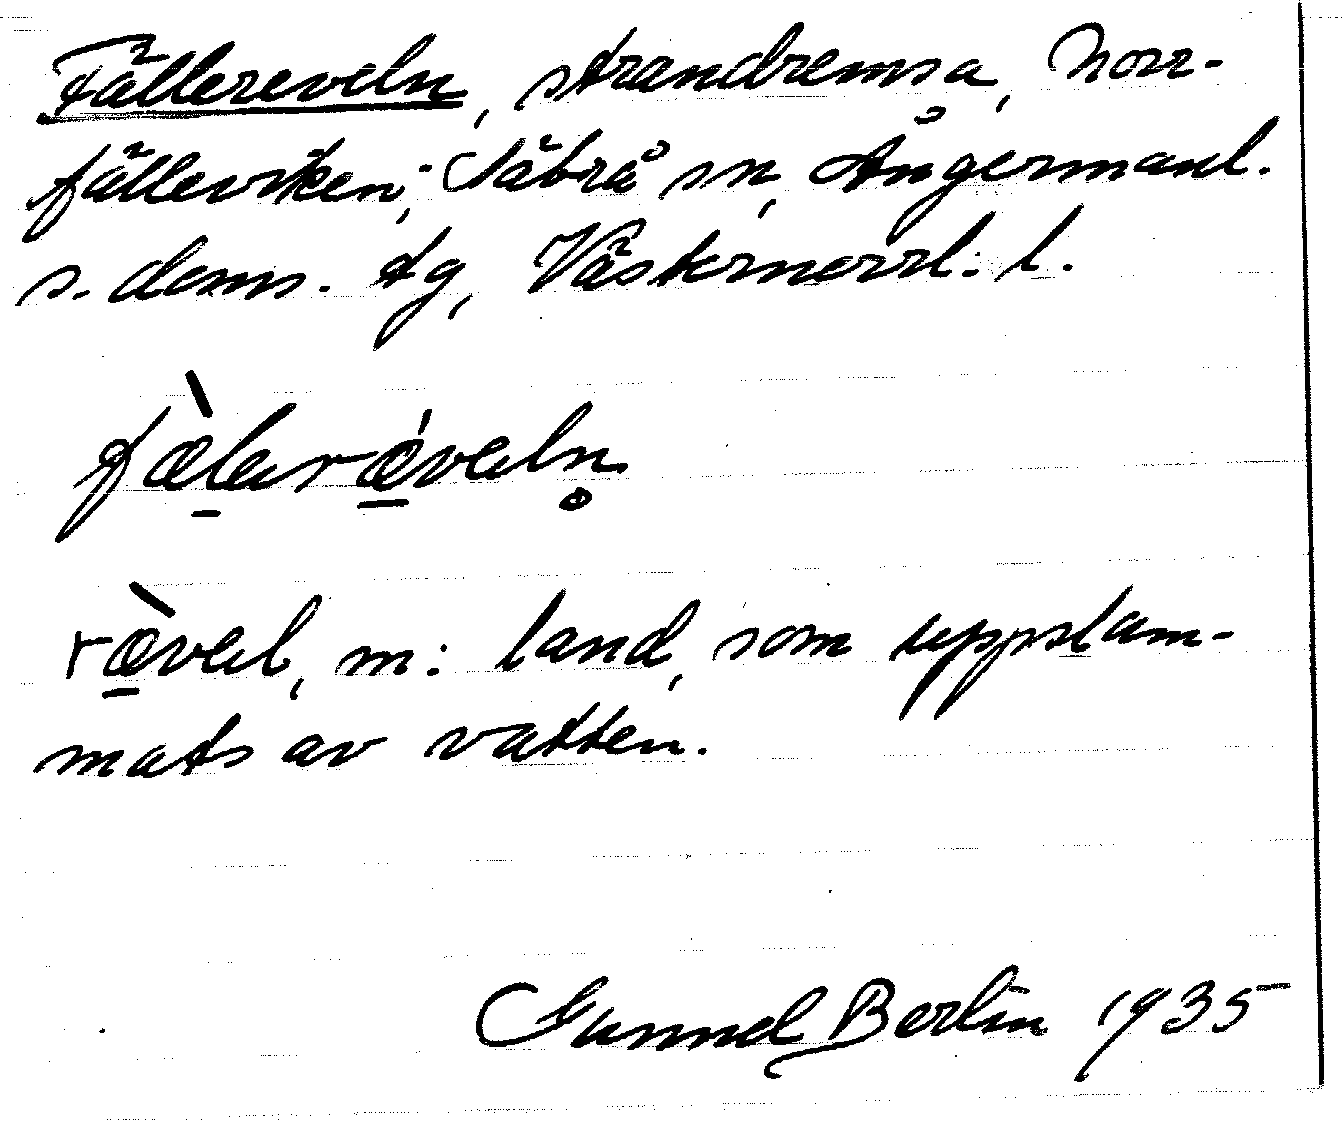 Fällereveln, strandremsa, Norr-
fällewiken, Säbrå sn, Ångermanl.
s. doms. tg, Västernorrl:s l.
fæ̀lerǽveln̥
ræ̀vel, m: land, som uppslam-
mats av vatten.
Gunnel Berlin 1935